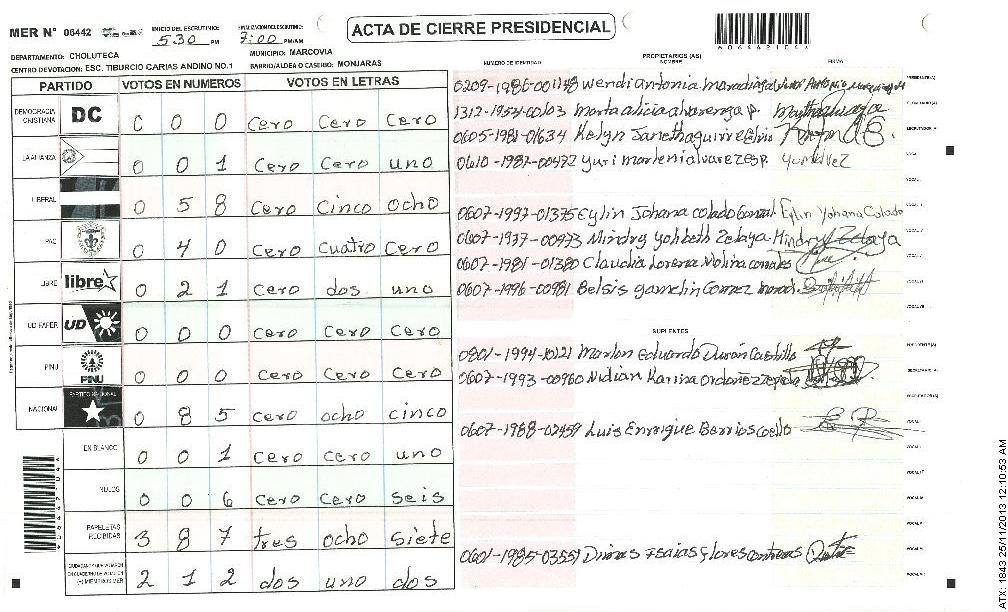 ACTA DE CIERRE PRESIDENCIAL
MER N° 06442
INICIO DEL ESCRUTINIO: 5:30 PM
FINALIZACION DEL ESCRUTINIO: 7:00 PM/AM
DEPARTAMENTO: CHOLUTECA
MUNICIPIO: MARCOVIA
CENTRO DE VOTACION: ESC. TIBURCIO CARIAS ANDINO NO.1
BARRIO/ALDEA O CASERIO: MONJARAS
PARTIDO VOTOS EN NUMEROS VOTOS EN LETRAS
DEMOCRACIA CRISTIANA DC 0 0 0 Cero Cero Cero
LA ALIANZA 0 0 1 Cero Cero uno
LIBERAL 0 5 8 Cero Cinco ocho
PAC 0 4 0 Cero Cuatro Cero
LIBRE libre 0 2 1 Cero dos uno
UD FAPER UD 0 0 0 Cero Cero Cero
PINU PINU 0 0 0 Cero Cero Cero
NACIONAL PARTIDO NACIONAL 0 8 5 Cero ocho cinco
EN BLANCO 0 0 1 Cero Cero uno
NULOS 0 0 6 Cero Cero seis
PAPELETAS RECIBIDAS 3 8 7 tres ocho siete
CIUDADANOS QUE VOTARON EN CUADERNO DE VOTACION (+) MIEMBROS MER 2 1 2 dos uno dos
PROPIETARIOS (AS)
NUMERO DE IDENTIDAD NOMBRE FIRMA
0209-1986-001148 Wendi Antonia
1312-1954-00103 Marta alicia alvarenga p.
0605-1981-01634 Kelyn Janeth
0610-1987-00472 Yuri Marleni
0607-1997-01375 Eylin Johana Colado Eylin Yohana Colado
0607-1977-00973 Mindry Yohbeth Zelaya Mindry Zelaya
0607-1981-01380 Claudia Lorena Molina
0607-1996-00981 Belsis
SUPLENTES
0801-1994-10121 Marlon Eduardo Durán Castillo
0607-1993-00960 Nidian Karina Ordoñez
0607-1988-02459 Luis Enrrique Barrios Coello
0601-1985-03551 Dimas Isaias flores contreras
ATX: 1843 25/11/2013 12:10:53 AM